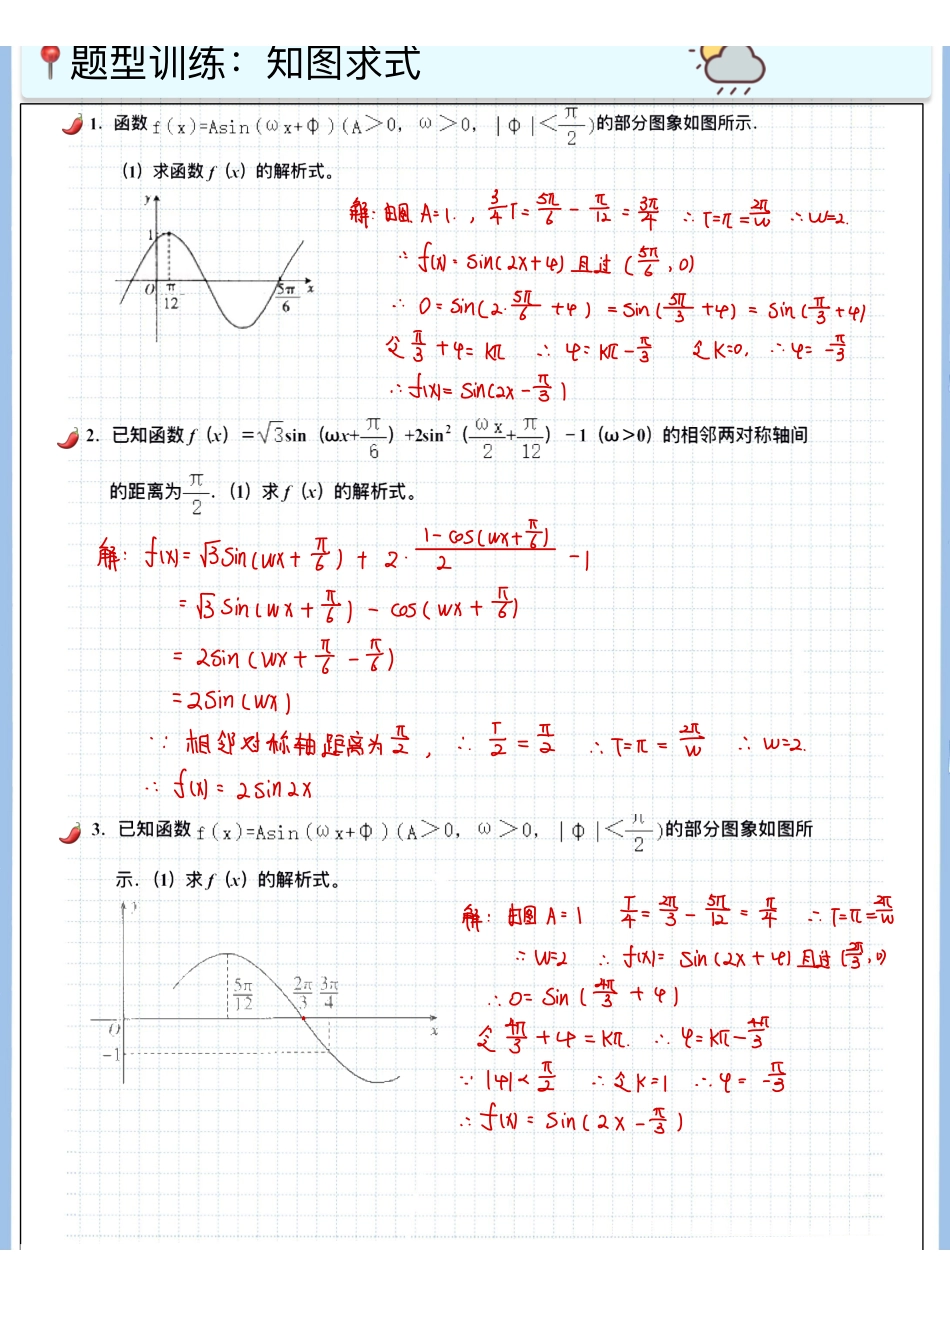 题型训练：知图求式
1. 函数 f(x)=Asin(ωx+φ)(A＞0, ω＞0, |φ|＜π/2)的部分图象如图所示.
（1）求函数 f（x）的解析式。
y
1
O π/12 5π/6 x
解：由图 A=1. , 3/4T=5π/6 - π/12 = 3π/4 ∴T=π=2π/w ∴w=2.
∴ f(x)=sin(2x+φ) 且过 (5π/6, 0)
∴ 0=sin(2·5π/6+φ) = sin(5π/3+φ) = sin(π/3+φ)
令 π/3+φ=kπ ∴ φ=kπ-π/3 令k=0, ∴φ= -π/3
∴f(x)=sin(2x-π/3)
2. 已知函数 f（x）=√3sin（ωx+π/6）+2sin²（ωx/2+π/12）-1（ω>0）的相邻两对称轴间
的距离为π/2.（1）求 f（x）的解析式。
解：f(x)=√3sin(wx+π/6) + 2·(1-cos(wx+π/6))/2 -1
=√3sin(wx+π/6) - cos(wx+π/6)
= 2sin(wx+π/6-π/6)
=2sin(wx)
∵ 相邻对称轴距离为π/2 , ∴ T/2=π/2 ∴T=π=2π/w ∴ w=2.
∴ f(x)=2sin2x
3. 已知函数 f(x)=Asin(ωx+φ)(A＞0, ω＞0, |φ|＜π/2)的部分图象如图所
示.（1）求 f（x）的解析式。
y
5π/12 2π/3 3π/4
O x
-1
解：由图 A=1 T/4=2π/3-5π/12=π/4 ∴T=π=2π/w
∴w=2 ∴ f(x)= sin(2x+φ) 且过(2π/3, 0)
∴0= sin(4π/3+φ)
令 4π/3+φ=kπ. ∴ φ=kπ-4π/3
∵ |φ|<π/2 ∴令k=1 ∴φ= -π/3
∴f(x)= sin(2x-π/3)